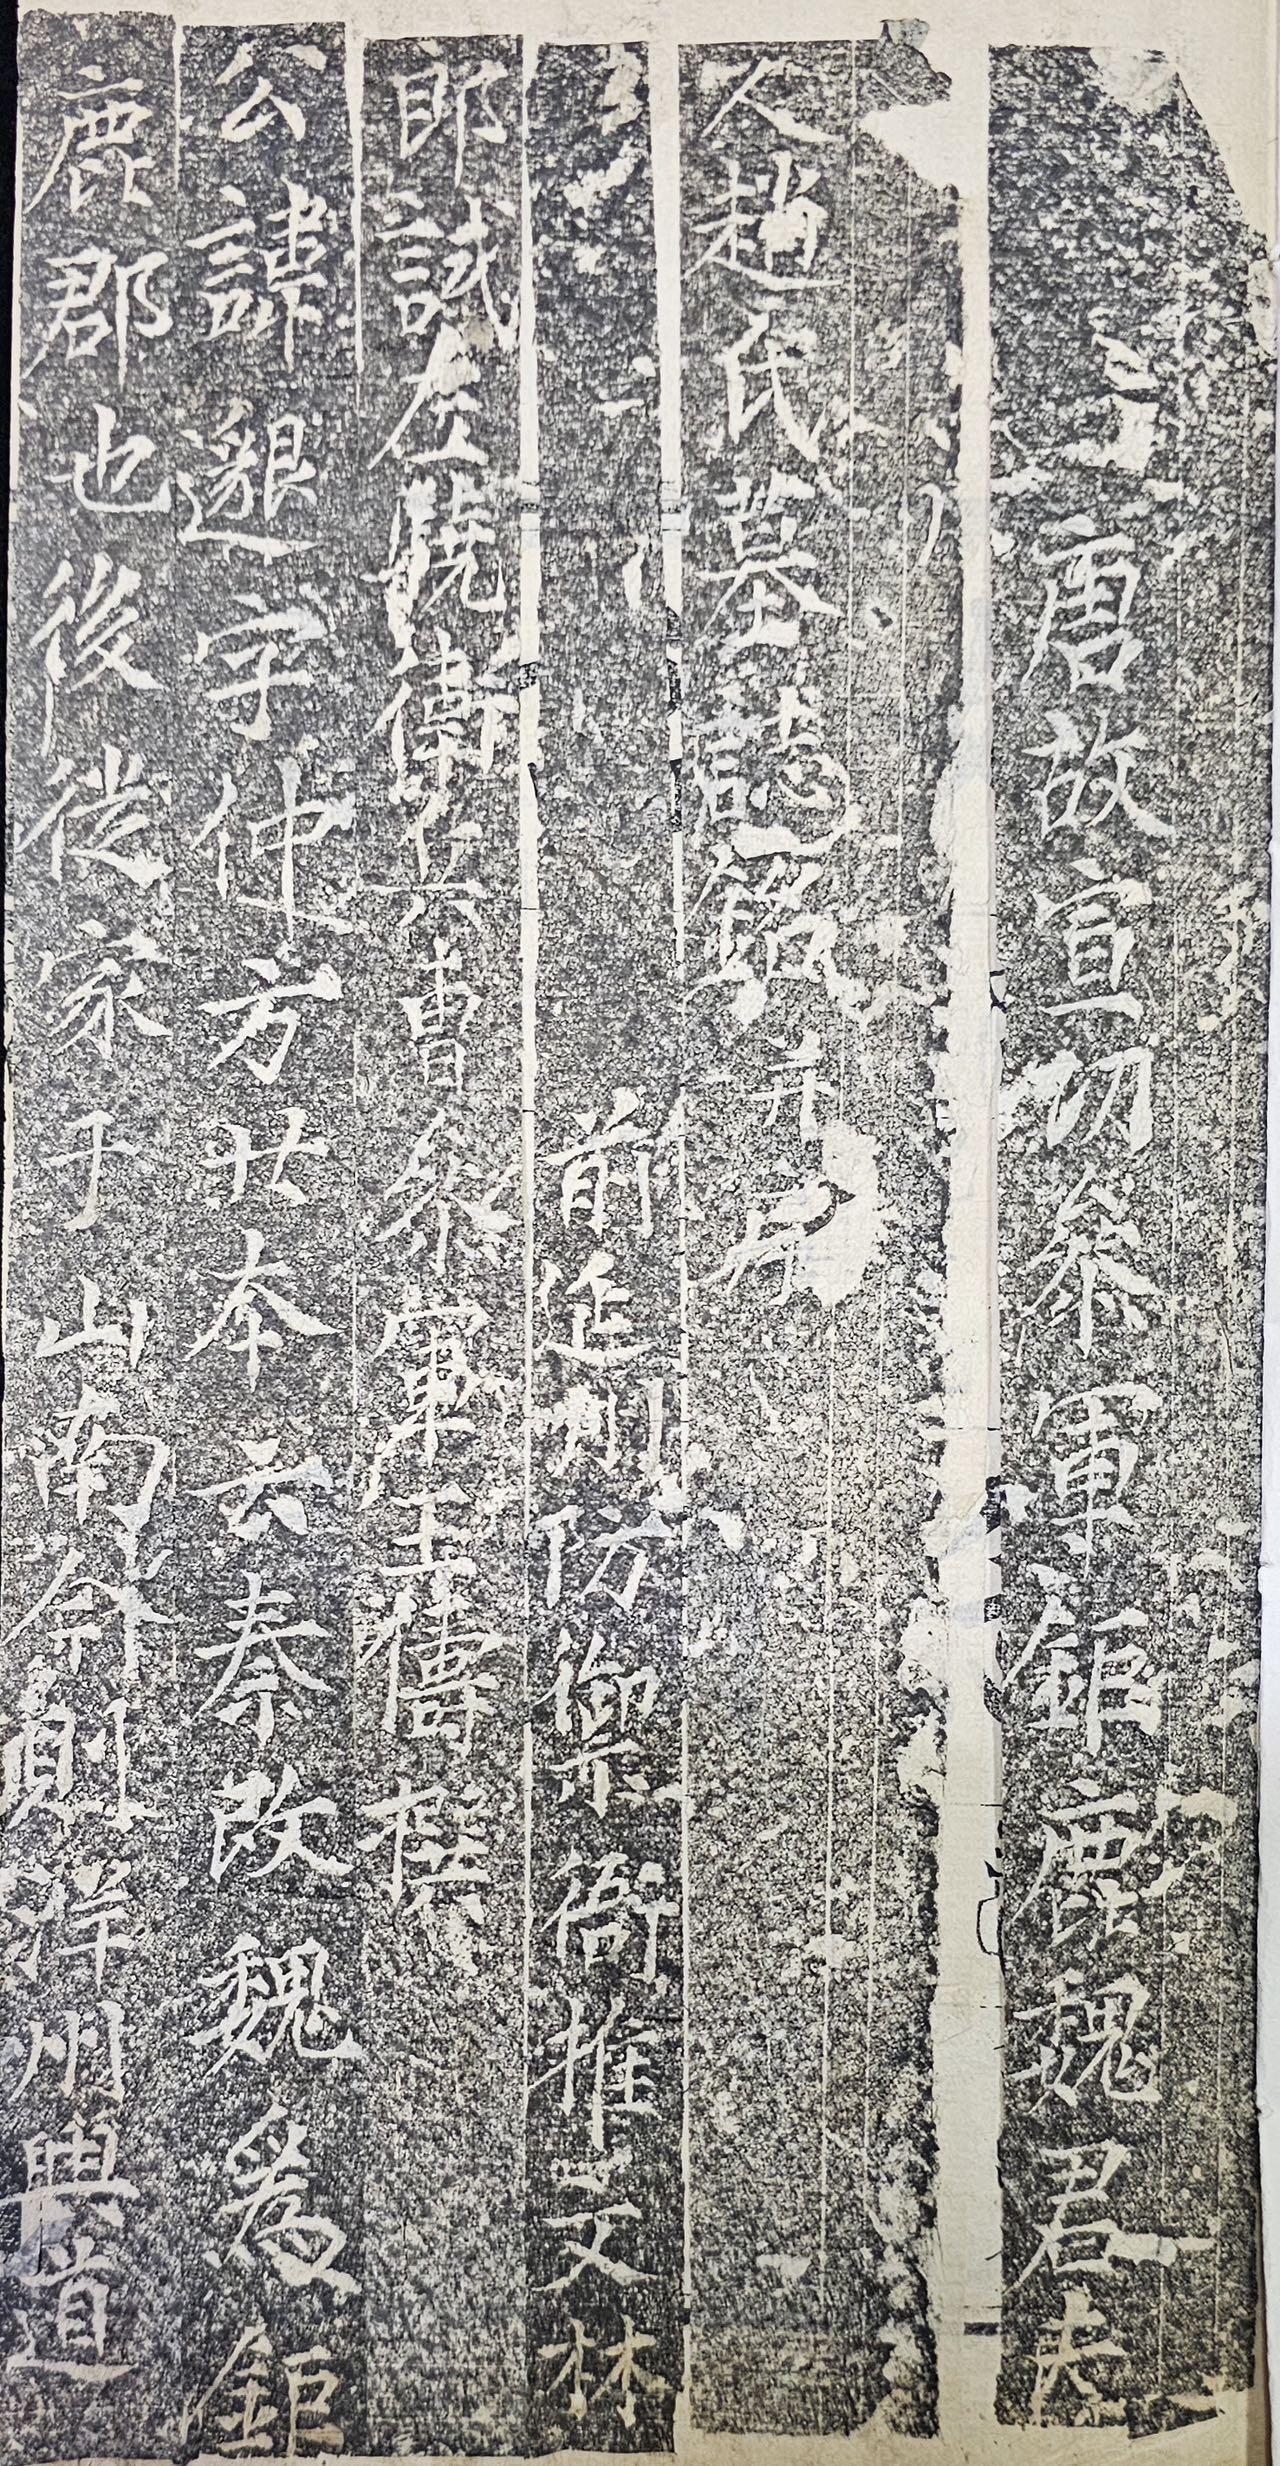 唐故宣功參軍鉅鹿魏君夫
人趙氏墓誌銘并序
前延州防禦衙推文林
郎試左驍衛兵曹參軍王儔撰
公諱邈字仲方其本云秦改魏爲鉅
鹿郡也後從家于山南今則洋州興道